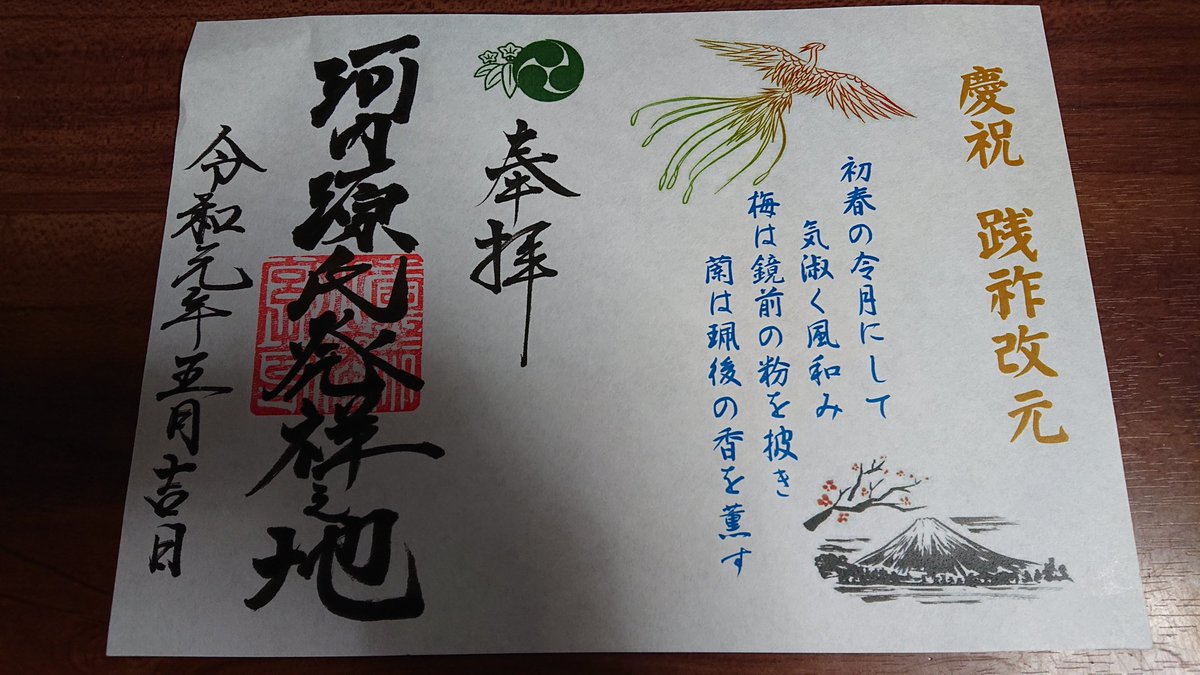 慶祝 践祚改元
初春の令月にして
気淑く風和み
梅は鏡前の粉を披き
蘭は珮後の香を薫す
奉拝
河内源氏発祥之地
令和元年五月吉日